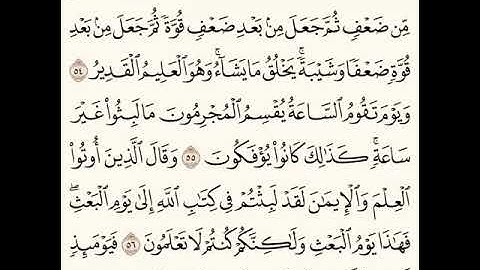 مِّن ضَعْفٍ ثُمَّ جَعَلَ مِنۢ بَعْدِ ضَعْفٍ قُوَّةً ثُمَّ جَعَلَ مِنۢ بَعْدِ
قُوَّةٍ ضَعْفًا وَشَيْبَةً ۚ يَخْلُقُ مَا يَشَآءُ ۖ وَهُوَ الْعَلِيمُ الْقَدِيرُ ٥٤
وَيَوْمَ تَقُومُ السَّاعَةُ يُقْسِمُ الْمُجْرِمُونَ مَا لَبِثُوا۟ غَيْرَ
سَاعَةٍ ۚ كَذَٰلِكَ كَانُوا۟ يُؤْفَكُونَ ٥٥ وَقَالَ الَّذِينَ أُوتُوا۟
الْعِلْمَ وَالْإِيمَٰنَ لَقَدْ لَبِثْتُمْ فِى كِتَٰبِ اللَّهِ إِلَىٰ يَوْمِ الْبَعْثِ ۖ
فَهَٰذَا يَوْمُ الْبَعْثِ وَلَٰكِنَّكُمْ كُنتُمْ لَا تَعْلَمُونَ ٥٦ فَيَوْمَئِذٍ